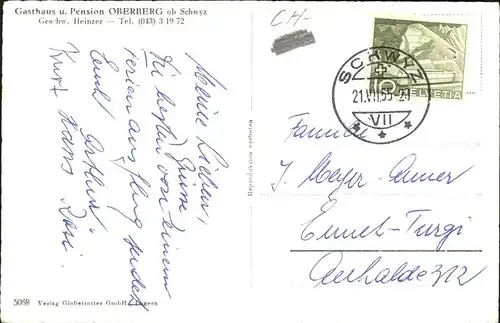 Gasthaus u. Pension OBERBERG ob Schwyz
Geschw. Heinzer — Tel. (043) 3 19 72
CH-
SCHWYZ
21.VII.55-21
VII
HELVETIA
Meine Lieben,
Die besten Grüsse
von einem
Ferienausflug sendet
Euch
Kurt Hans Rosi.
Reproduktion verboten
Familie
J. Meyer-Anner
Ennet-Turgi
Anhalde 312
5058 Verlag Globetrotter GmbH, Luzern